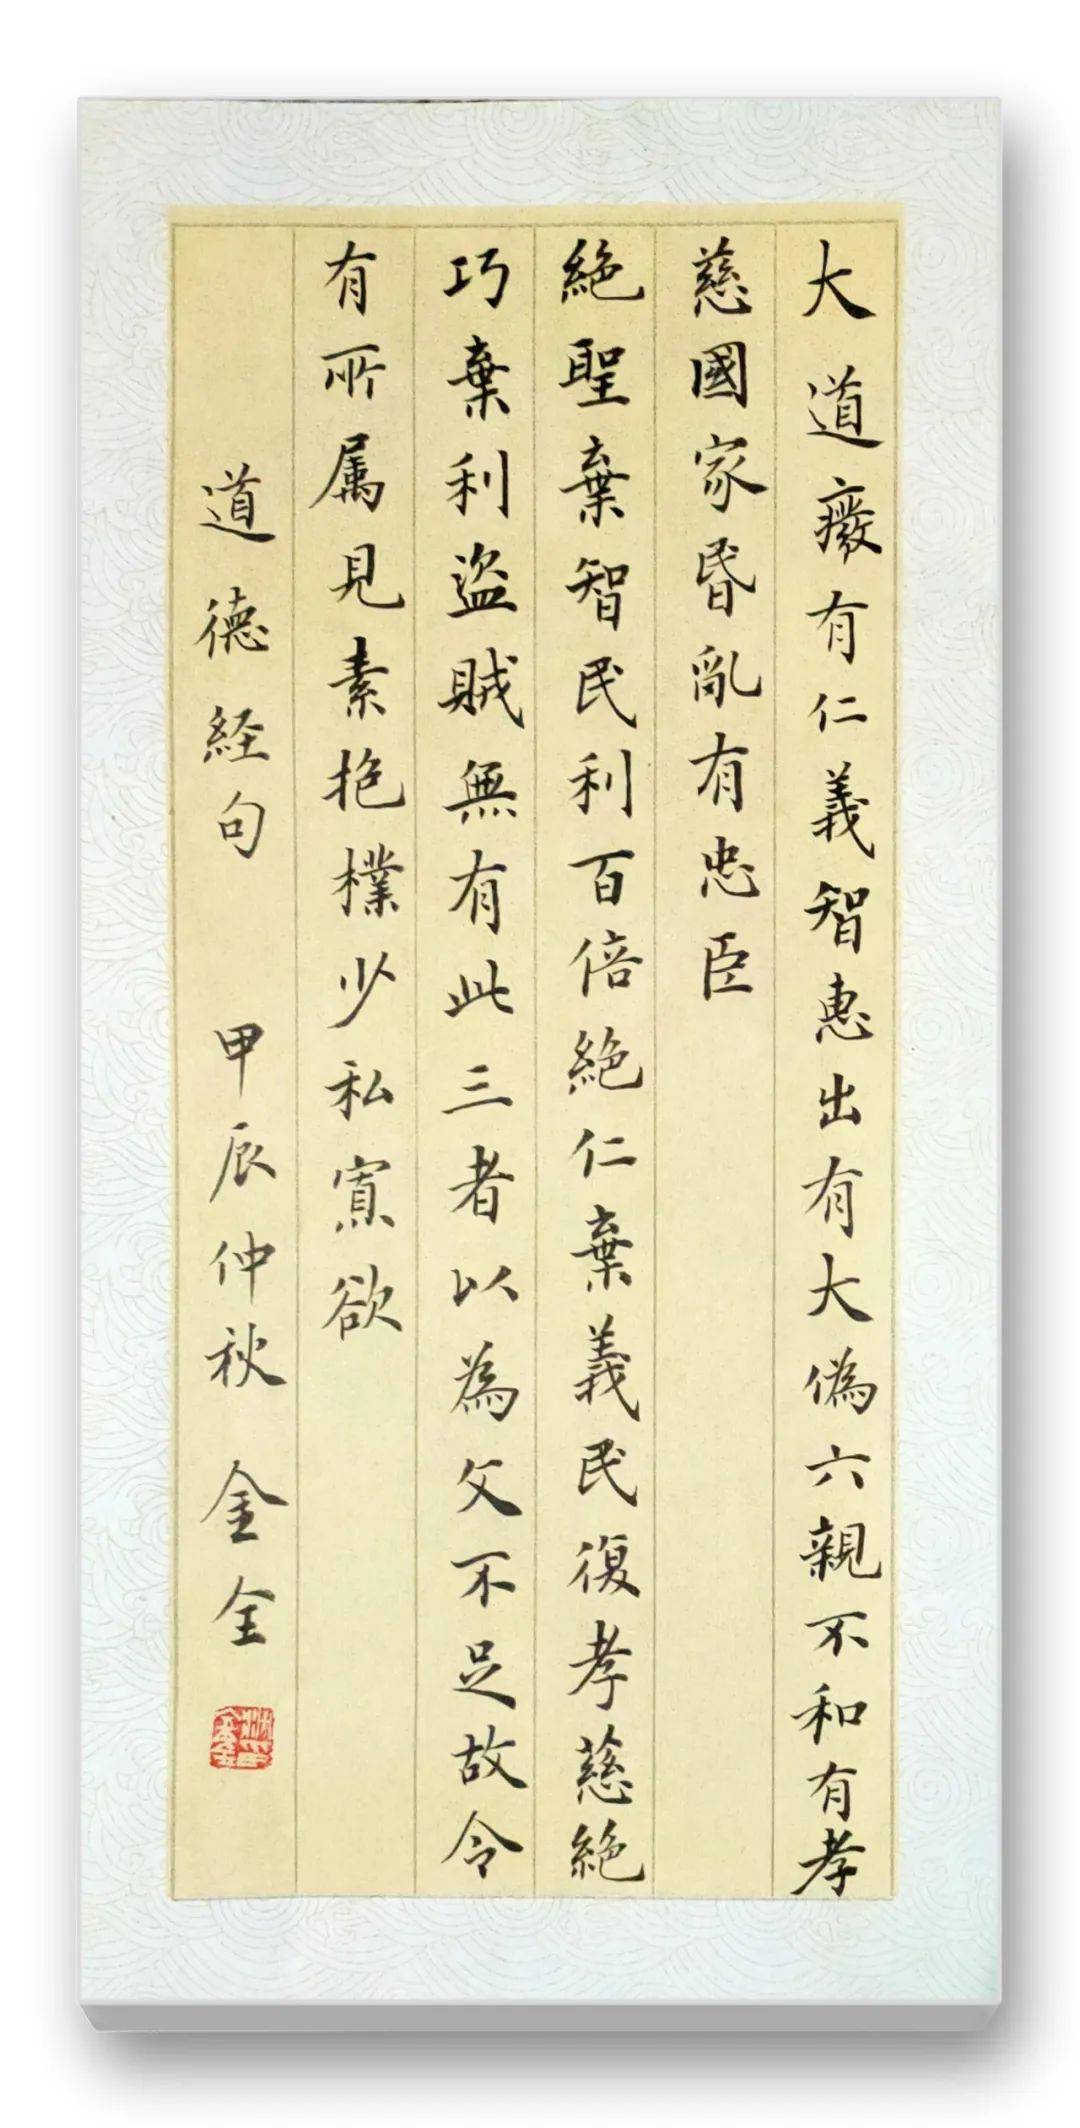 大道癈有仁義智惠出有大偽六親不和有孝
慈國家昏亂有忠臣
絕聖棄智民利百倍絕仁棄義民復孝慈絕
巧棄利盗賊無有此三者以為文不足故令
有所属見素抱樸少私寡欲
道德経句 甲辰仲秋 金全